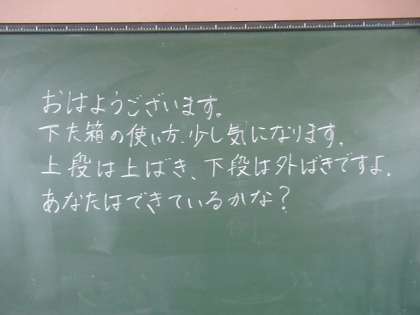 おはようございます。
下た箱の使い方、少し気になります。
上段は上ばき、下段は外ばきですよ。
あなたはできているかな？